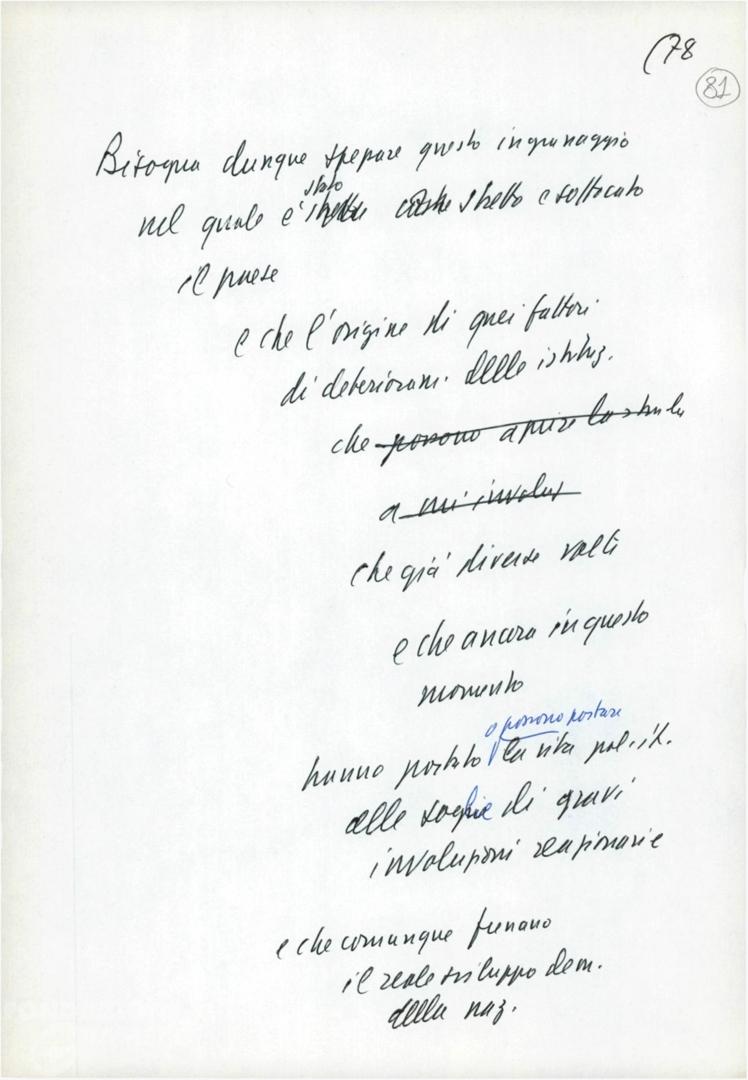 (78
81
Bisogna dunque spezzare questo ingranaggio
stato
nel quale è stretto e soffocato
il paese
e che l'origine di quei fattori
di deterioram. delle istituz.
che possono aprire la strada
a
che già diverse volte
e che ancora in questo
momento
o possono portare
hanno portato la vita polit.
alle soglie di gravi
involuzioni reazionarie
e che comunque frenano
il reale sviluppo dem.
della naz.